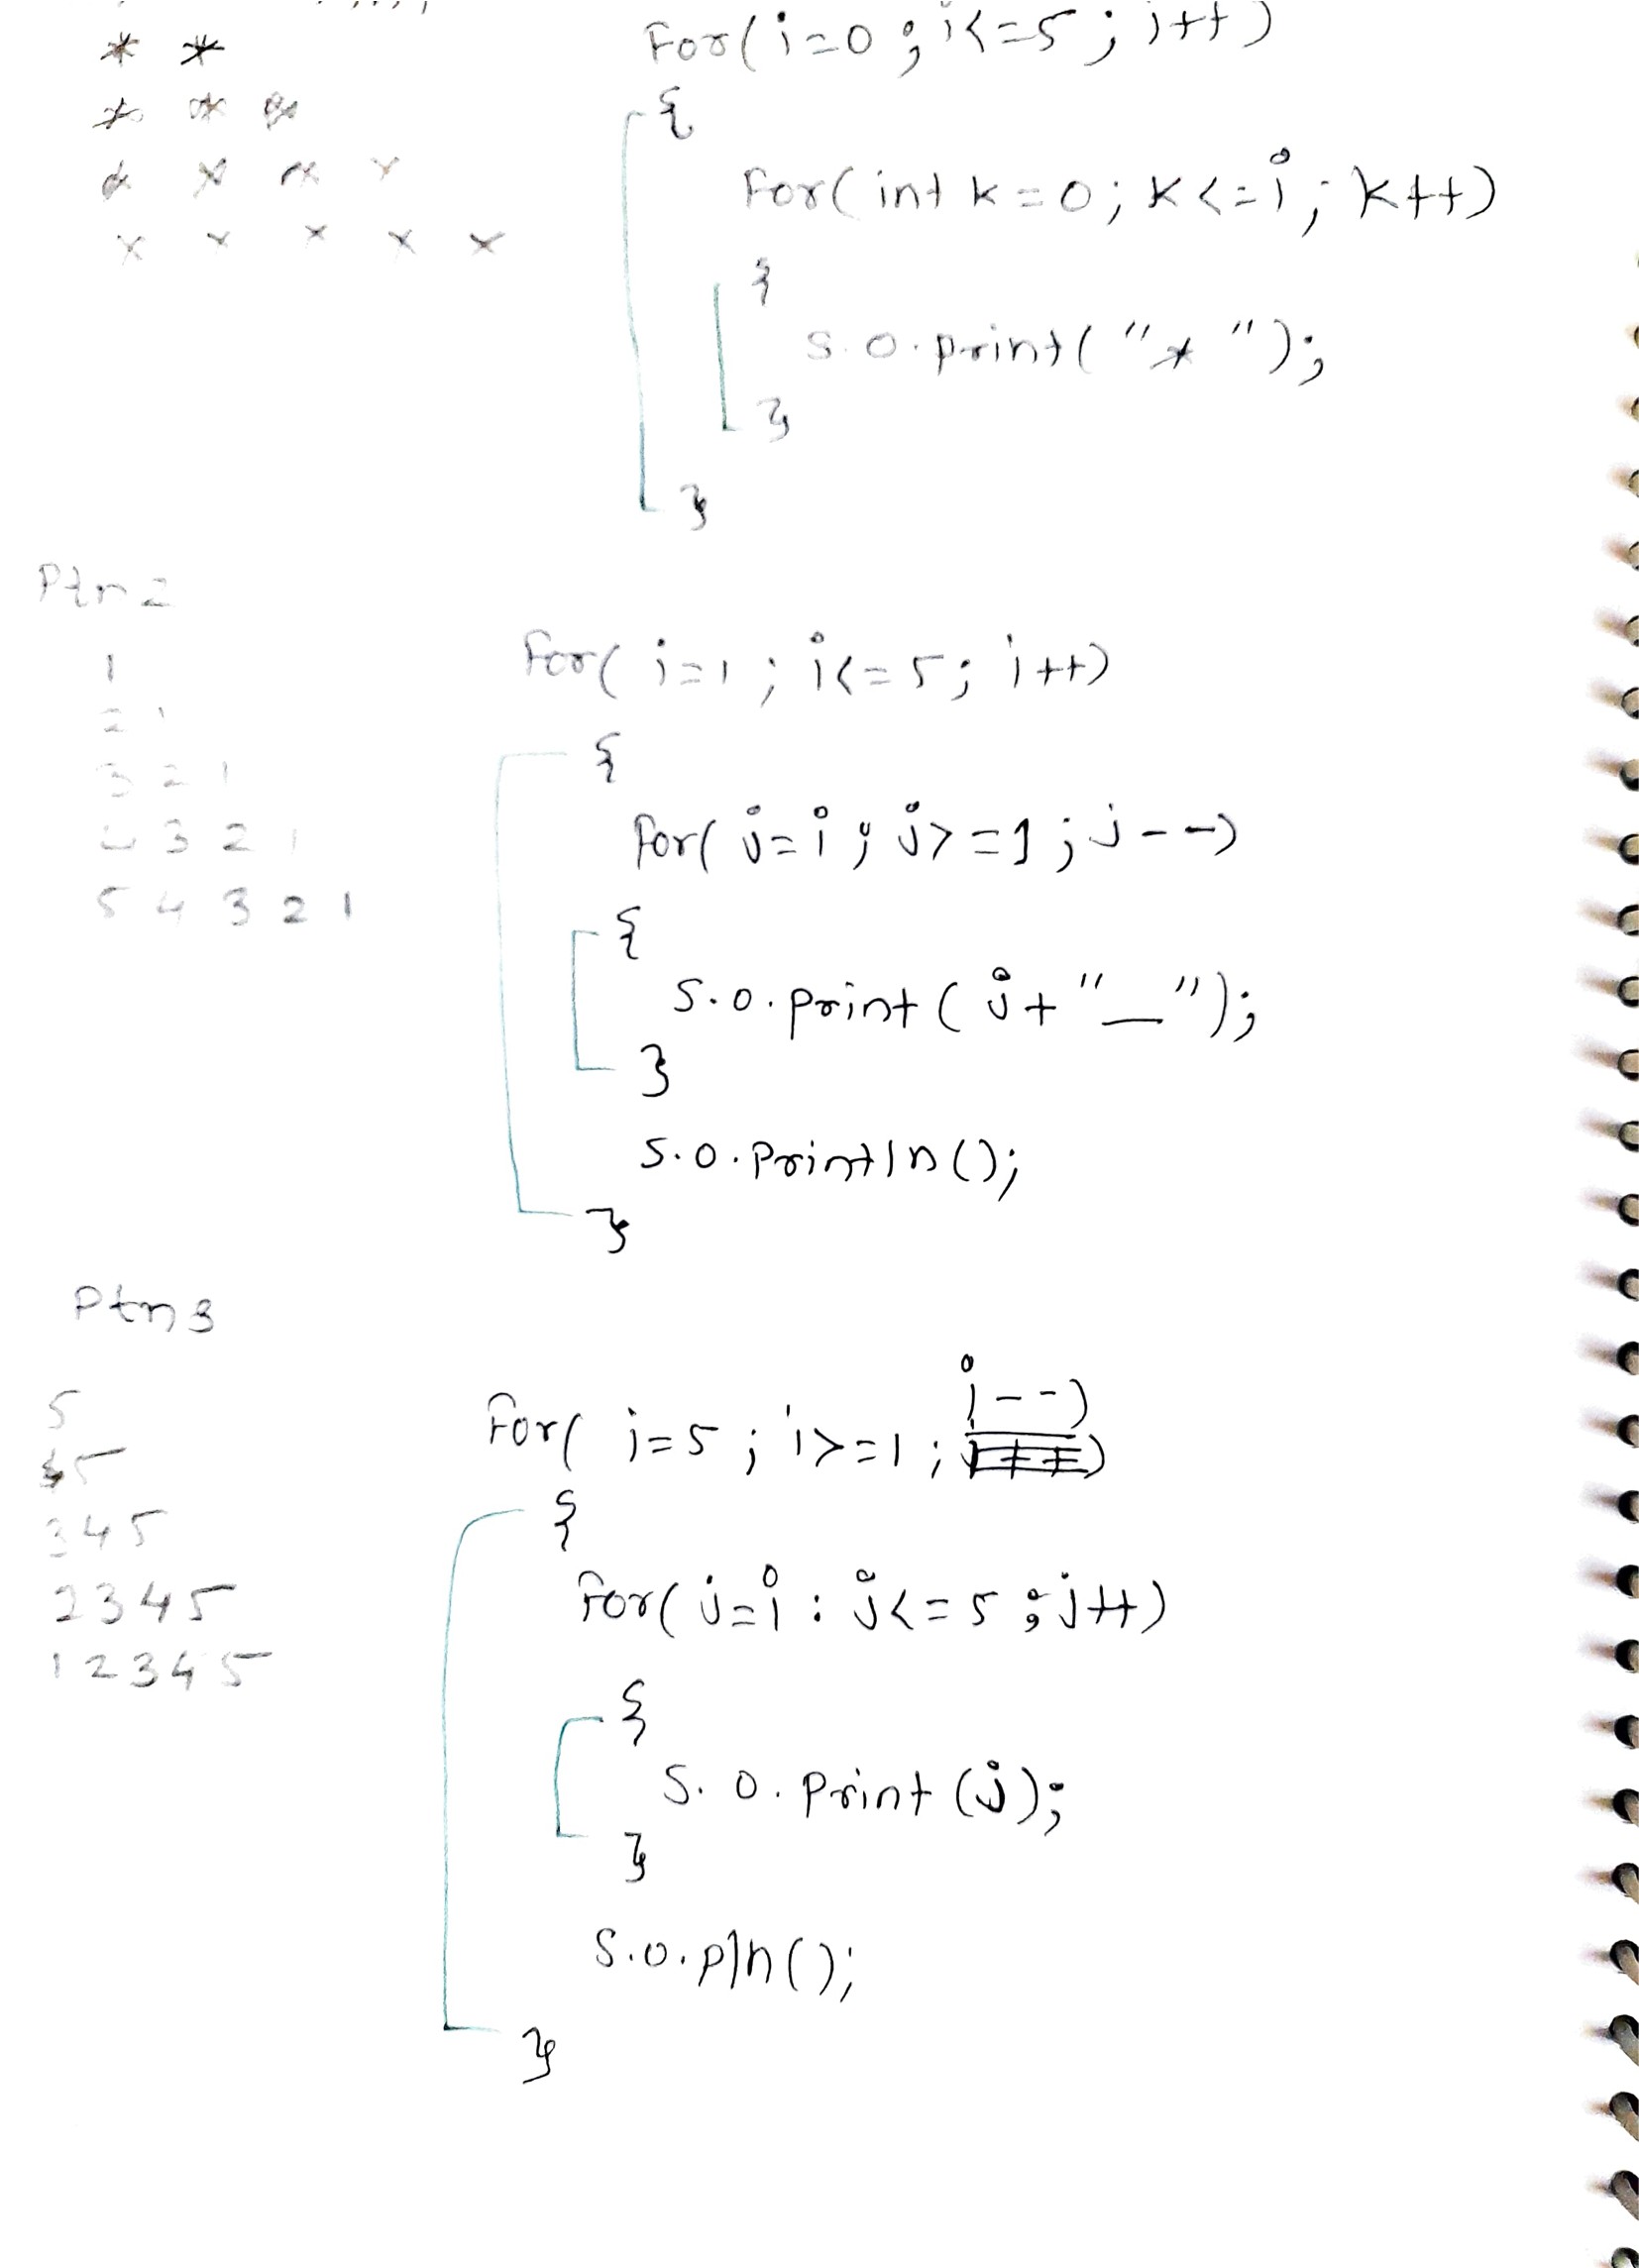 * *
* * *
* * * *
* * * * *
For(i=0;i<=5;i++)
{
For(int k=0;k<=i;k++)
{
S.O.print("* ");
}
}
Ptn 2
1
2 1
3 2 1
4 3 2 1
5 4 3 2 1
For(i=1;i<=5;i++)
{
For(j=i;j>=1;j--)
{
S.O.print(j+"_");
}
S.O.Println();
}
Ptn 3
5
45
345
2345
12345
For(i=5;i>=1;i--)
{
For(j=i:j<=5;j++)
{
S.O.Print(j);
}
S.O.pln();
}